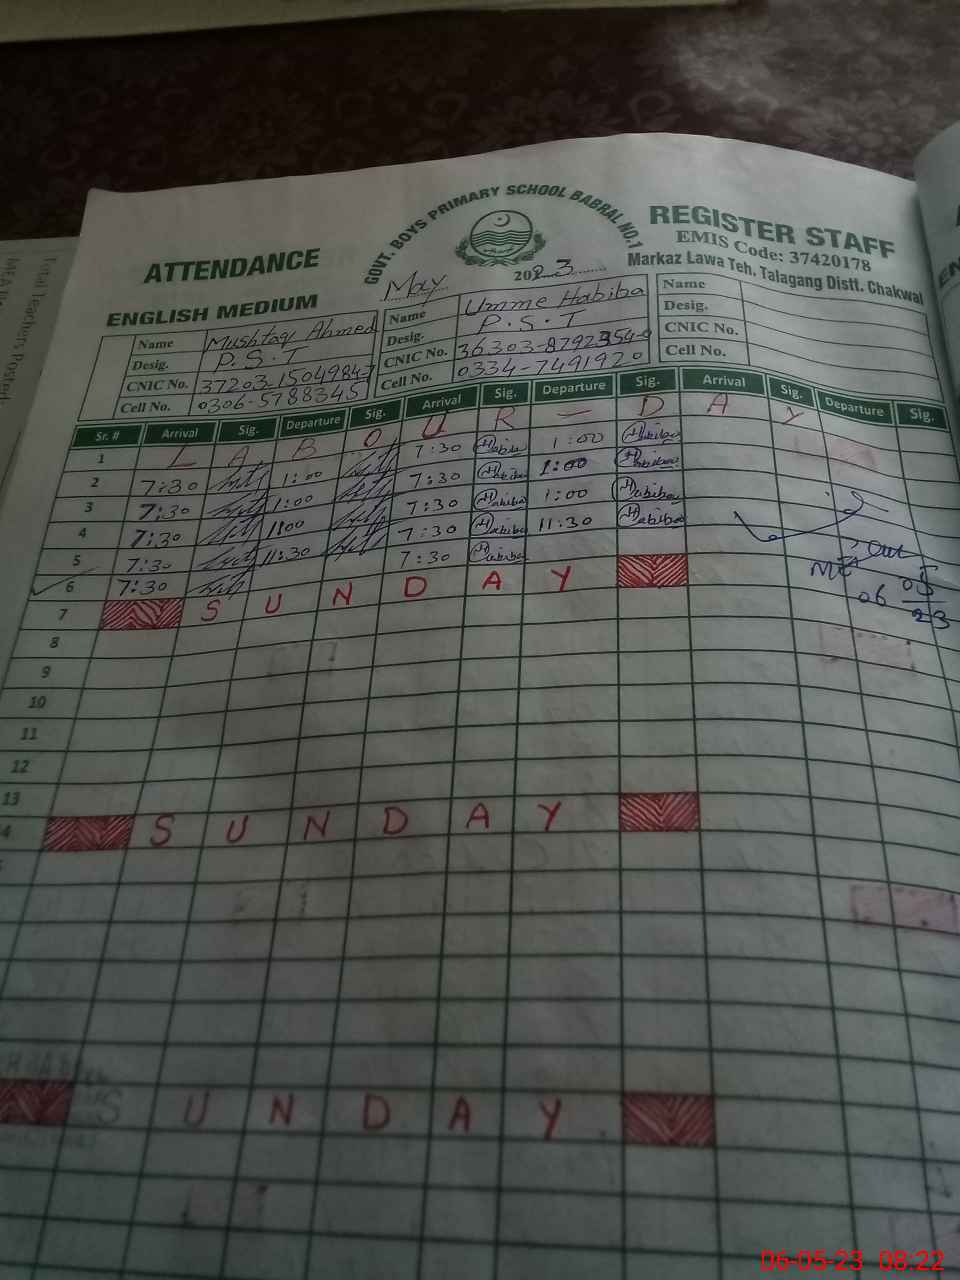 GOVT. BOYS PRIMARY SCHOOL BABRAL NO.1
ATTENDANCE
REGISTER STAFF
EMIS Code: 37420178
Markaz Lawa Teh, Talagang Distt. Chakwal
ENGLISH MEDIUM
May 2023
Name Mushtaq Ahmed Name Umme Habiba Name
Desig. P.S.T Desig. P.S.T Desig.
CNIC No. 37203-1504984-7 CNIC No. 36303-8792354-0 CNIC No.
Cell No. 0306-5788345 Cell No. 0334-7491920 Cell No.
Sr. # Arrival Sig. Departure Sig. Arrival Sig. Departure Sig. Arrival Sig. Departure Sig.
1 LABOUR - DAY
2 7:30 1:00 7:30 Habiba 1:00 Habiba
3 7:30 1:00 7:30 Habiba 1:00 Habiba
4 7:30 1:00 7:30 Habiba 1:00 Habiba
5 7:30 11:30 7:30 Habiba 11:30 Habiba
6 7:30 7:30 Habiba
7 SUNDAY
06 05 23
8
9
10
11
12
13
4 SUNDAY
SUNDAY
Total Teachers Posted:
06-05-23 08:22